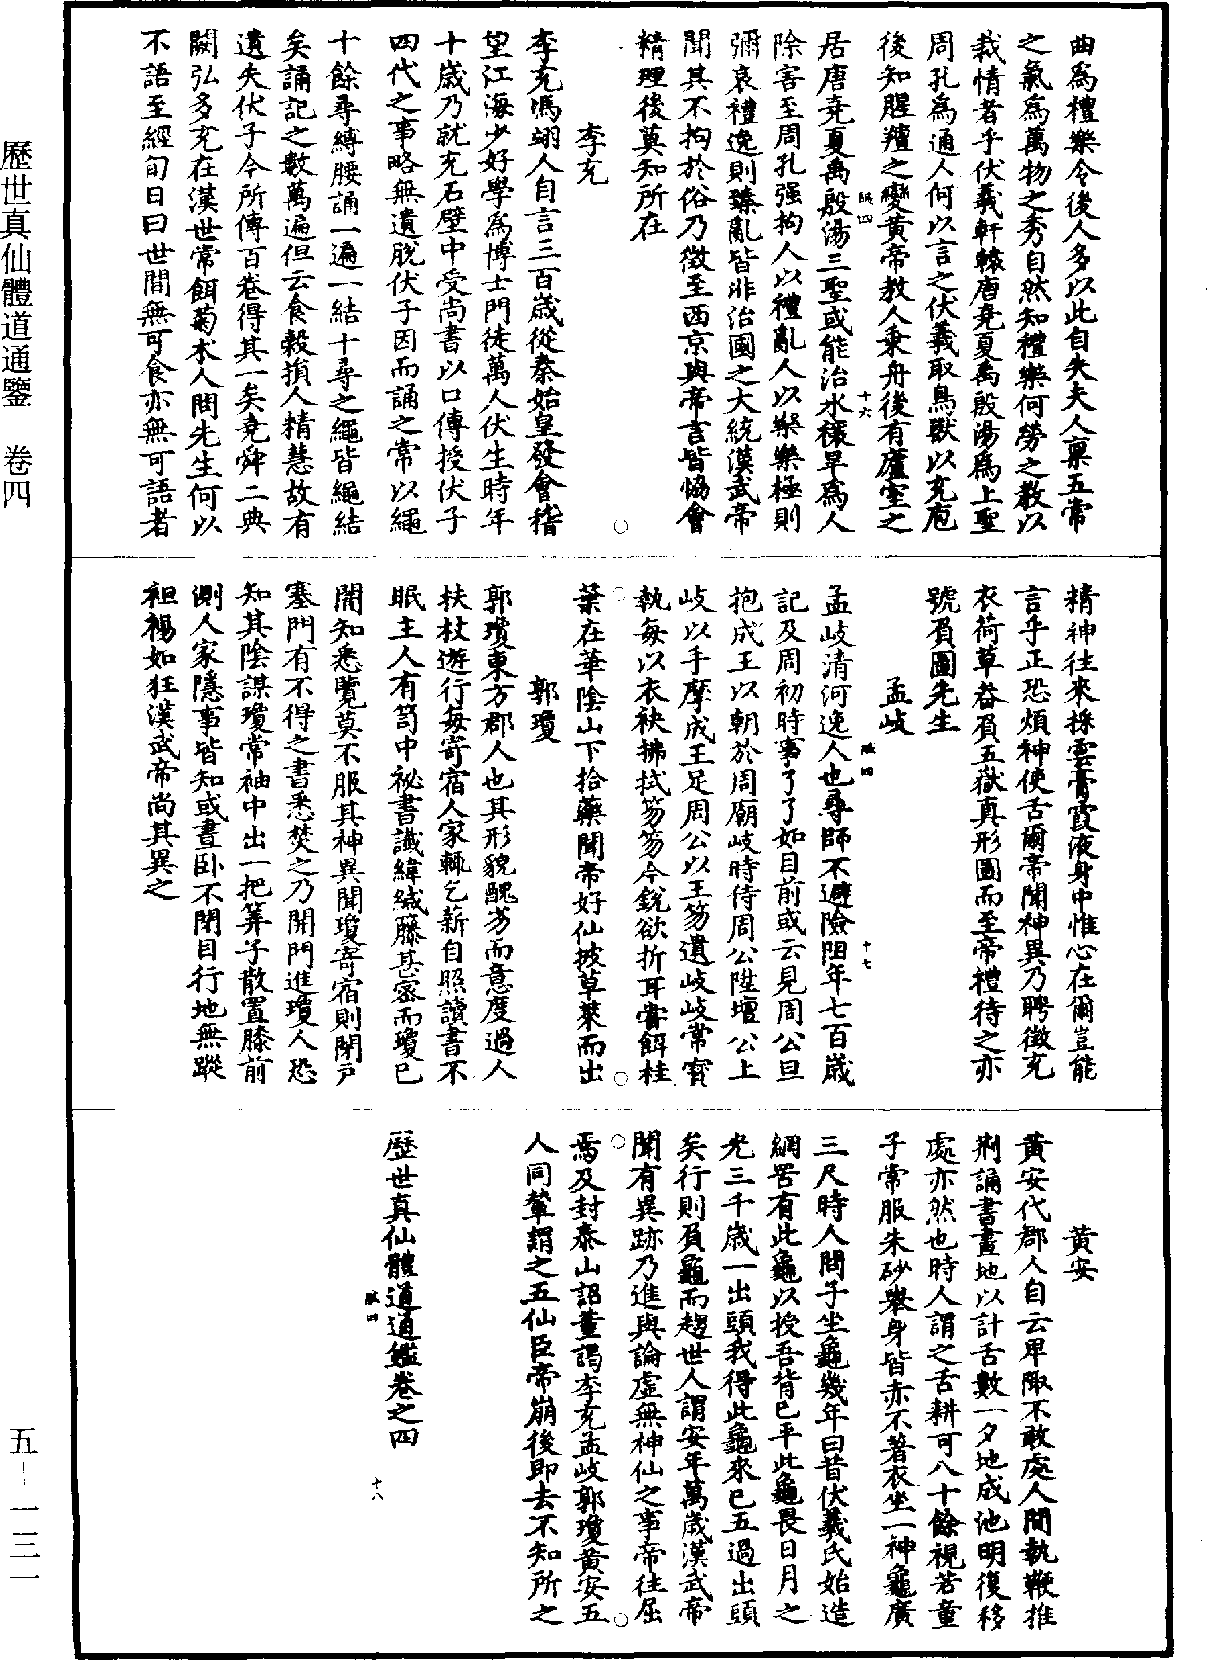 歷世真仙體道通鑒　卷四
五-一三一
曲為禮樂令後人多以此自失夫人稟五常
之氣為萬物之秀自然知禮樂何勞之教以
裁情者乎伏羲軒轅唐堯夏禹殷湯為上聖
周孔為通人何以言之伏羲取鳥獸以充庖
後知腥羶之變黃帝教人乘舟後有廬室之
居唐堯夏禹殷湯三聖或能治水禳旱為人
除害至周孔强拘人以禮亂人以樂樂極則
彌哀禮逸則臻亂皆非治國之大統漢武帝
聞其不拘於俗乃徵至西京與帝言皆恊會
精理後莫知所在
李充
李充馮翊人自言三百歲從秦始皇發會稽
望江海少好學為博士門徒萬人伏生時年
十歲乃就充石壁中受尚書以口傳授伏子
四代之事略無遺脫伏子因而誦之常以繩
十餘尋縛腰誦一遍一結十尋之繩皆繩結
矣誦記之數萬遍但云食穀損人精慧故有
遺失伏子今所傳百卷得其一矣堯舜二典
闕弘多充在漢世常餌菊朮人問先生何以
不語至經旬日曰世間無可食亦無可語者
精神往來採雲膏霞液身中惟心在爾豈能
言乎正恐煩神使舌爾帝聞神異乃聘徵充
衣荷草畚負五嶽真形圖而至帝禮待之亦
號負圖先生
孟岐
孟岐清河逸人也尋師不避險阻年七百歲
記及周初時事了了如目前或云見周公旦
抱成王以朝於周廟岐時侍周公陞壇公上
岐以手摩成王足周公以玉笏遺岐岐常寶
執每以衣袂拂拭笏笏今銳欲折耳嘗餌桂
葉在華陰山下拾藥聞帝好仙披草萊而出
郭瓊
郭瓊東方郡人也其形貌醜劣而意度過人
扶杖遊行每寄宿人家輒乞薪自照讀書不
眠主人有笥中祕書讖緯緘縢甚密而瓊已
闇知悉覽莫不服其神異聞瓊寄宿則閉戶
塞門有不得之書悉焚之乃開門進瓊人恐
知其陰謀瓊常袖中出一把筭子散置膝前
測人家隱事皆知或晝臥不閉目行地無蹤
袒裼如狂漢武帝尚其異之
黃安
黃安代郡人自云卑陬不敢處人間執鞭推
荊誦書畫地以計舌數一夕地成池明復移
處亦然也時人謂之舌耕可八十餘視若童
子常服朱砂舉身皆赤不著衣坐一神龜廣
三尺時人問子坐龜幾年曰昔伏羲氏始造
網罟有此龜以授吾背已平此龜畏日月之
光三千歲一出頭我得此龜來已五過出頭
矣行則負龜而趨世人謂安年萬歲漢武帝
聞有異跡乃進與論虛無神仙之事帝往屈
焉及封泰山詔董謁李充孟岐郭瓊黃安五
人同輦謂之五仙臣帝崩後即去不知所之
歷世真仙體道通鑑卷之四
十六
十七
十八